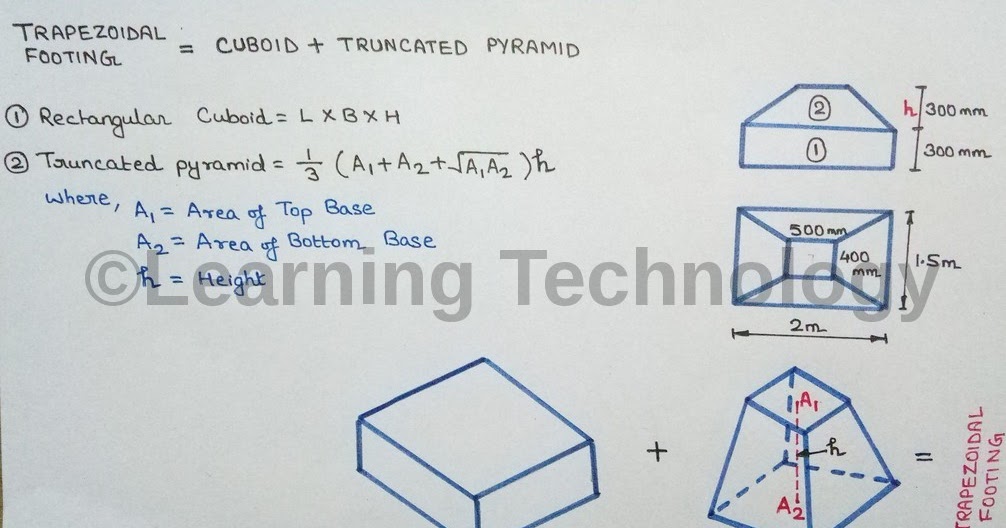 TRAPEZOIDAL
FOOTING = CUBOID + TRUNCATED PYRAMID
① Rectangular Cuboid = L X B X H
② Truncated pyramid = 1/3 (A₁ + A₂ + √A₁A₂) h
where, A₁ = Area of Top Base
A₂ = Area of Bottom Base
h = Height
②
①
h 300 mm
300 mm
500 mm
400
mm
1.5m
2m
©Learning Technology
+
A₁
h
A₂
=
TRAPEZOIDAL
FOOTING